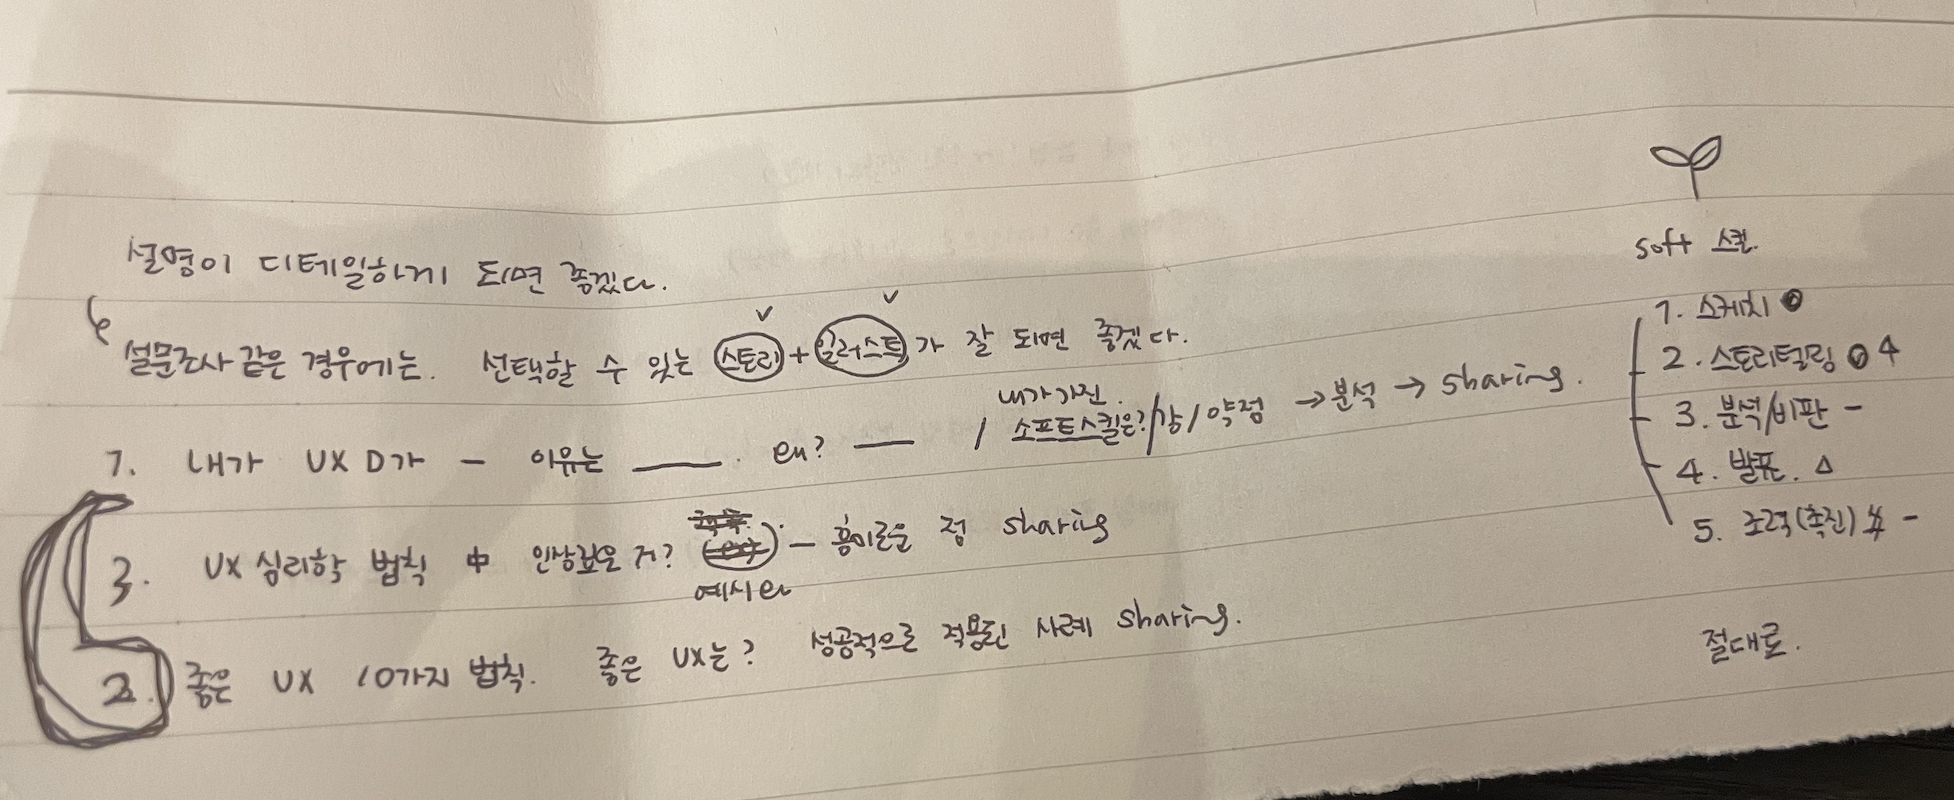 설명이 디테일하게 되면 좋겠다.
설문조사 같은 경우에는. 선택할 수 있는 스토리 + 일러스트가 잘 되면 좋겠다.
1. 내가 UX D가 - 이유는 ____. en? ____ / 내가 가진 소프트스킬은?/강/약점 → 분석 → sharing.
3. UX 심리학 법칙 中 인상깊은 거? - 흥미로운 점 sharing
예시 en
2. 좋은 UX 10가지 법칙. 좋은 UX는? 성공적으로 적용된 사례 sharing.
soft 스킬.
1. 스케치
2. 스토리텔링 4
3. 분석/비판 -
4. 발표. △
5. 조력(촉진) # -
절대로.